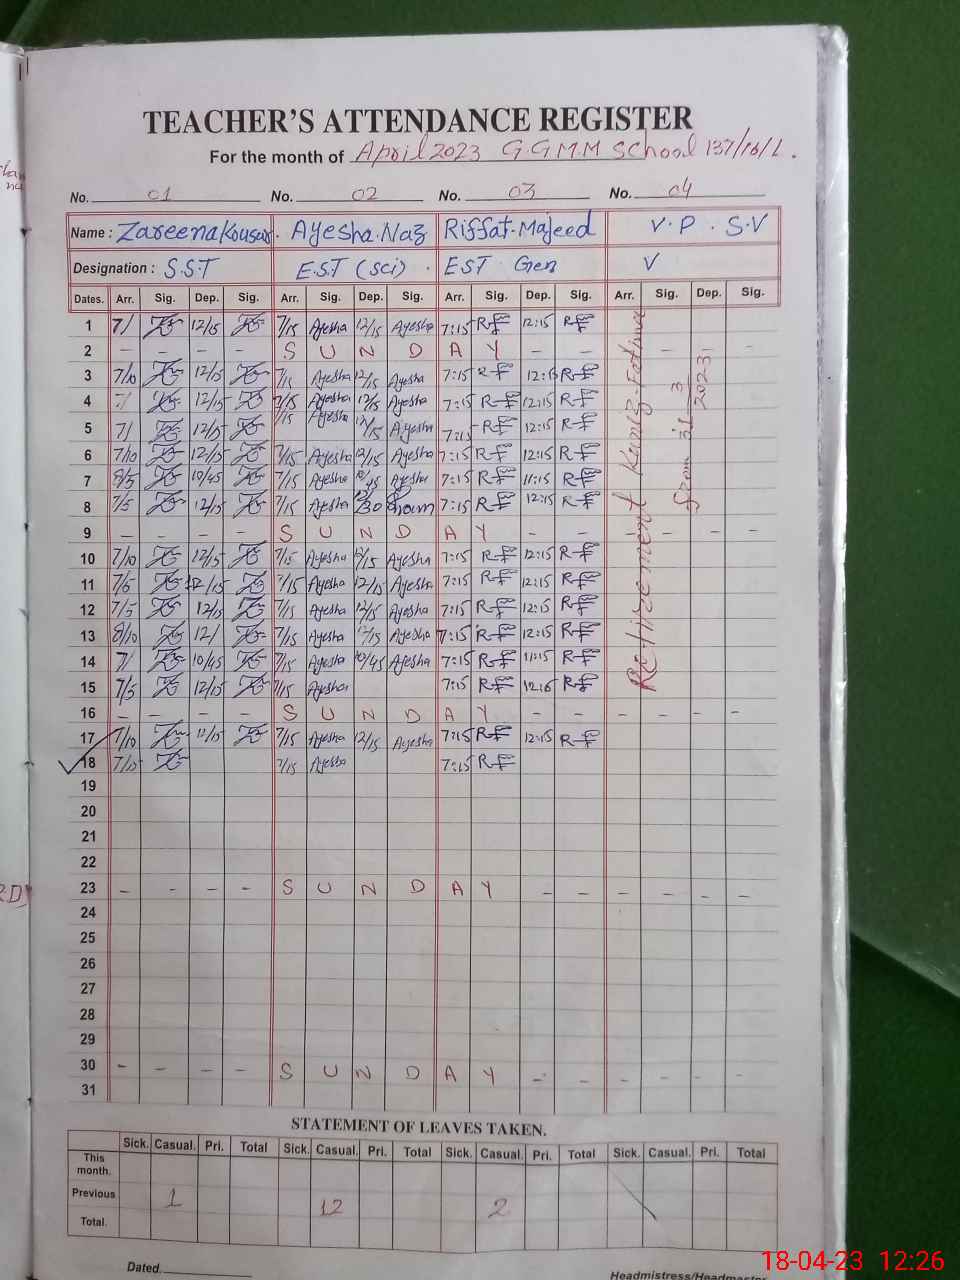 TEACHER'S ATTENDANCE REGISTER
For the month of April 2023 G.G.M.M School 137/16/L.
No. 01 No. 02 No. 03 No. 04
Name : Zareena Kousar. Ayesha.Naz Riffat.Majeed V.P.S.V
Designation : S.S.T E.S.T (sci). EST Gen V
Dates. Arr. Sig. Dep. Sig. Arr. Sig. Dep. Sig. Arr. Sig. Dep. Sig. Arr. Sig. Dep. Sig.
1 7/ 12/15 7/15 Ayesha 12/15 Ayesha 7:15 12:15
2 - - - - S U N D A Y - - - -
3 7/10 12/15 7/15 Ayesha 12/15 Ayesha 7:15
4 7/ 12/15 7/15 Ayesha 12/15 Ayesha 7:15 12:15
5 7/ 12/15 7/15 Ayesha 12/15 Ayesha 7:15 12:15
6 7/10 12/15 7/15 Ayesha 12/15 Ayesha 7:15 12:15
7 10/45 7/15 Ayesha 10/45 Ayesha 7:15 11:15
8 7/5 12/15 7/15 Ayesha 7:15 12:15
9 - - - - S U N D A Y - - - - - -
10 7/10 12/15 7/15 Ayesha 12/15 Ayesha 7:15 12:15
11 7/5 12/15 7/15 Ayesha 12/15 Ayesha 7:15 12:15
12 7/5 12/15 7/15 Ayesha 12/15 Ayesha 7:15 12:15
13 12/ 7/15 Ayesha 12/15 Ayesha 7:15 12:15
14 7/ 10/45 7/15 Ayesha 10/45 Ayesha 7:15 11:15
15 7/5 12/15 7/15 Ayesha 7:15
16 - - - - S U N D A Y - - - - - -
17 7/10 12/15 7/15 Ayesha 12/15 Ayesha 7:15 12:15
18 7/10 7/15 Ayesha 7:15
19
20
21
22
23 - - - - S U N D A Y - - - - - -
24
25
26
27
28
29
30 - - - - S U N D A Y - - - - - -
31
Retirement
from 31 3/2023
STATEMENT OF LEAVES TAKEN.
Sick. Casual. Pri. Total Sick. Casual. Pri. Total Sick. Casual. Pri. Total Sick. Casual. Pri. Total
This month.
Previous 1 12 2
Total.
Dated.
Headmistress/Headmaster
18-04-23 12:26